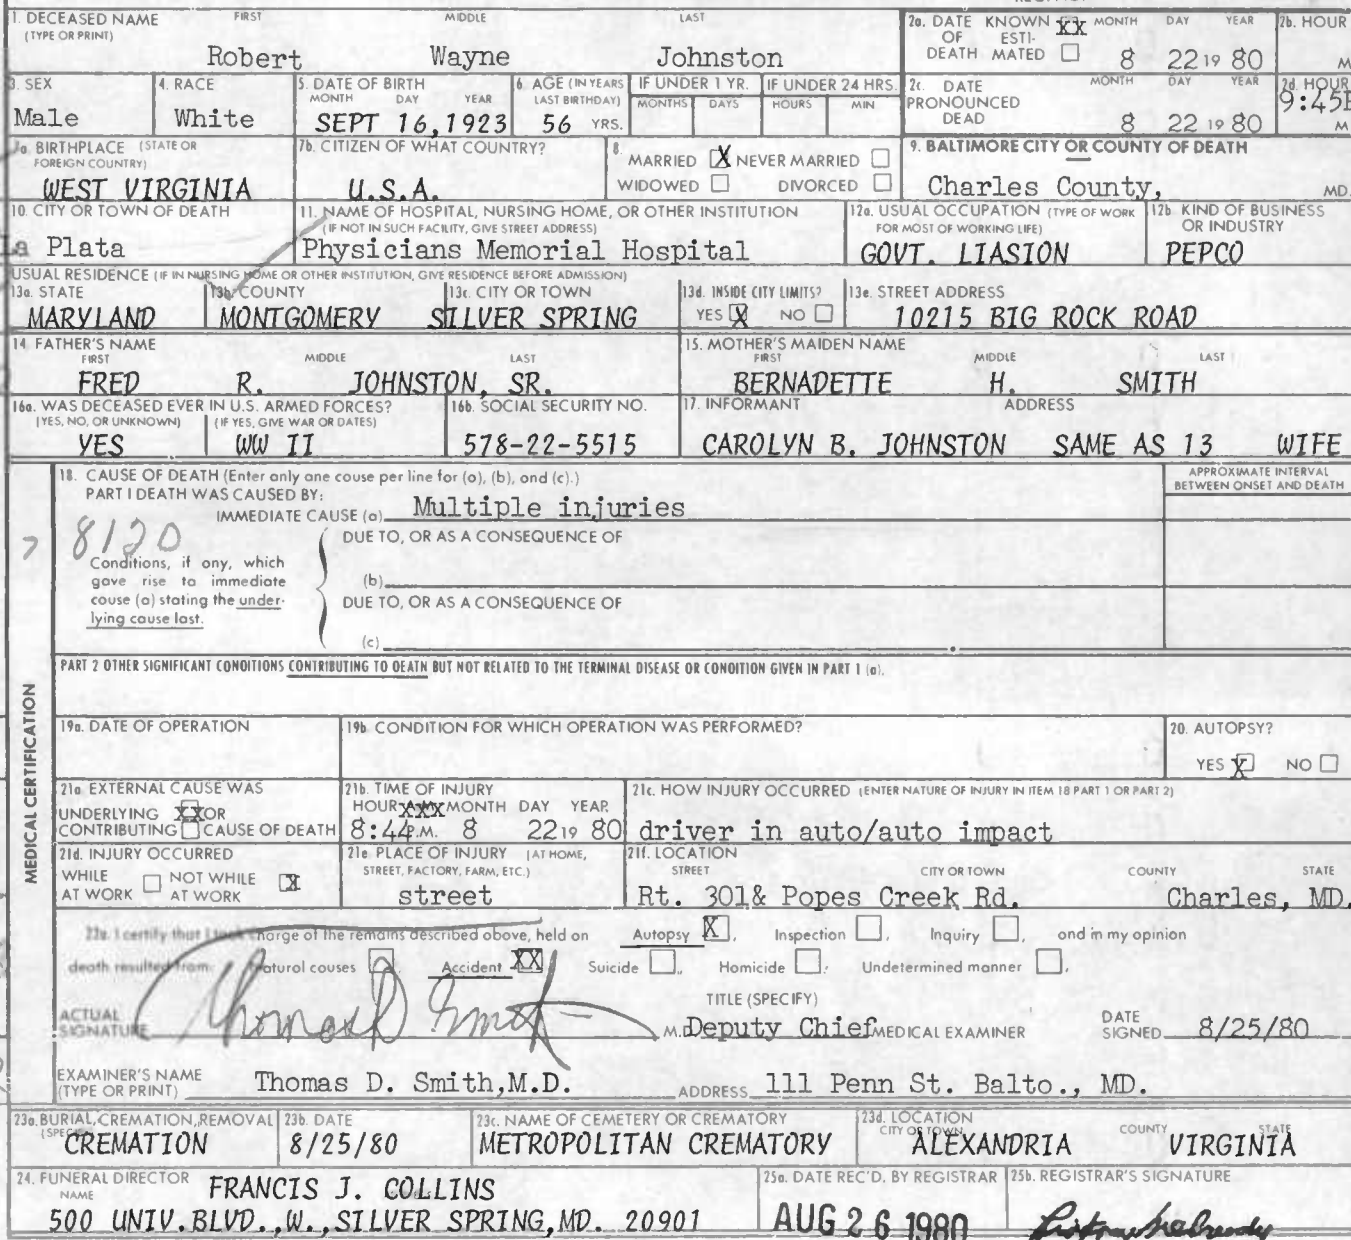 1. DECEASED NAME FIRST MIDDLE LAST
(TYPE OR PRINT)
Robert Wayne Johnston
2a. DATE OF DEATH KNOWN XX ESTIMATED MONTH DAY YEAR
8 22 19 80
2b. HOUR
M
3. SEX
Male
4. RACE
White
5. DATE OF BIRTH
MONTH DAY YEAR
SEPT 16, 1923
6. AGE (IN YEARS LAST BIRTHDAY)
56 YRS.
IF UNDER 1 YR.
MONTHS DAYS
IF UNDER 24 HRS.
HOURS MIN
2c. DATE PRONOUNCED DEAD MONTH DAY YEAR
8 22 19 80
2d. HOUR
9:45
M
7a. BIRTHPLACE (STATE OR FOREIGN COUNTRY)
WEST VIRGINIA
7b. CITIZEN OF WHAT COUNTRY?
U.S.A.
8.
MARRIED X NEVER MARRIED
WIDOWED DIVORCED
9. BALTIMORE CITY OR COUNTY OF DEATH
Charles County, MD.
10. CITY OR TOWN OF DEATH
a Plata
11. NAME OF HOSPITAL, NURSING HOME, OR OTHER INSTITUTION
(IF NOT IN SUCH FACILITY, GIVE STREET ADDRESS)
Physicians Memorial Hospital
12a. USUAL OCCUPATION (TYPE OF WORK
FOR MOST OF WORKING LIFE)
GOVT. LIASION
12b KIND OF BUSINESS
OR INDUSTRY
PEPCO
USUAL RESIDENCE (IF IN NURSING HOME OR OTHER INSTITUTION, GIVE RESIDENCE BEFORE ADMISSION)
13a. STATE
MARYLAND
13b. COUNTY
MONTGOMERY
13c. CITY OR TOWN
SILVER SPRING
13d. INSIDE CITY LIMITS?
YES X NO
13e. STREET ADDRESS
10215 BIG ROCK ROAD
14. FATHER'S NAME
FIRST MIDDLE LAST
FRED R. JOHNSTON, SR.
15. MOTHER'S MAIDEN NAME
FIRST MIDDLE LAST
BERNADETTE H. SMITH
16a. WAS DECEASED EVER IN U.S. ARMED FORCES?
(YES, NO, OR UNKNOWN) (IF YES, GIVE WAR OR DATES)
YES WW II
16b. SOCIAL SECURITY NO.
578-22-5515
17. INFORMANT ADDRESS
CAROLYN B. JOHNSTON SAME AS 13 WIFE
MEDICAL CERTIFICATION
18. CAUSE OF DEATH (Enter only one cause per line for (a), (b), and (c).)
PART I DEATH WAS CAUSED BY:
IMMEDIATE CAUSE (a) Multiple injuries
APPROXIMATE INTERVAL
BETWEEN ONSET AND DEATH
8120
DUE TO, OR AS A CONSEQUENCE OF
Conditions, if any, which
gave rise to immediate
cause (a) stating the under-
lying cause last.
(b)
DUE TO, OR AS A CONSEQUENCE OF
(c)
PART 2 OTHER SIGNIFICANT CONDITIONS CONTRIBUTING TO DEATH BUT NOT RELATED TO THE TERMINAL DISEASE OR CONDITION GIVEN IN PART 1 (a).
19a. DATE OF OPERATION
19b CONDITION FOR WHICH OPERATION WAS PERFORMED?
20. AUTOPSY?
YES X NO
21a EXTERNAL CAUSE WAS
UNDERLYING XX OR
CONTRIBUTING CAUSE OF DEATH
21b. TIME OF INJURY
HOUR XXX MONTH DAY YEAR
8:44 P.M. 8 22 19 80
21c. HOW INJURY OCCURRED (ENTER NATURE OF INJURY IN ITEM 18 PART 1 OR PART 2)
driver in auto/auto impact
21d. INJURY OCCURRED
WHILE AT WORK NOT WHILE AT WORK X
21e PLACE OF INJURY (AT HOME,
STREET, FACTORY, FARM, ETC.)
street
21f. LOCATION
STREET CITY OR TOWN COUNTY STATE
Rt. 301& Popes Creek Rd. Charles, MD.
22a. I certify that I took charge of the remains described above, held on Autopsy X, Inspection, Inquiry, and in my opinion
death resulted from: Natural causes Accident XX Suicide, Homicide, Undetermined manner,
ACTUAL
SIGNATURE Thomas D Smith M.D.
TITLE (SPECIFY)
Deputy Chief MEDICAL EXAMINER
DATE
SIGNED 8/25/80
EXAMINER'S NAME
(TYPE OR PRINT) Thomas D. Smith, M.D.
ADDRESS 111 Penn St. Balto., MD.
23a. BURIAL, CREMATION, REMOVAL
CREMATION
23b. DATE
8/25/80
23c. NAME OF CEMETERY OR CREMATORY
METROPOLITAN CREMATORY
23d. LOCATION
CITY OR TOWN COUNTY STATE
ALEXANDRIA VIRGINIA
24. FUNERAL DIRECTOR
NAME
FRANCIS J. COLLINS
500 UNIV.BLVD.,W.,SILVER SPRING,MD. 20901
25a. DATE REC'D. BY REGISTRAR
AUG 26 1980
25b. REGISTRAR'S SIGNATURE